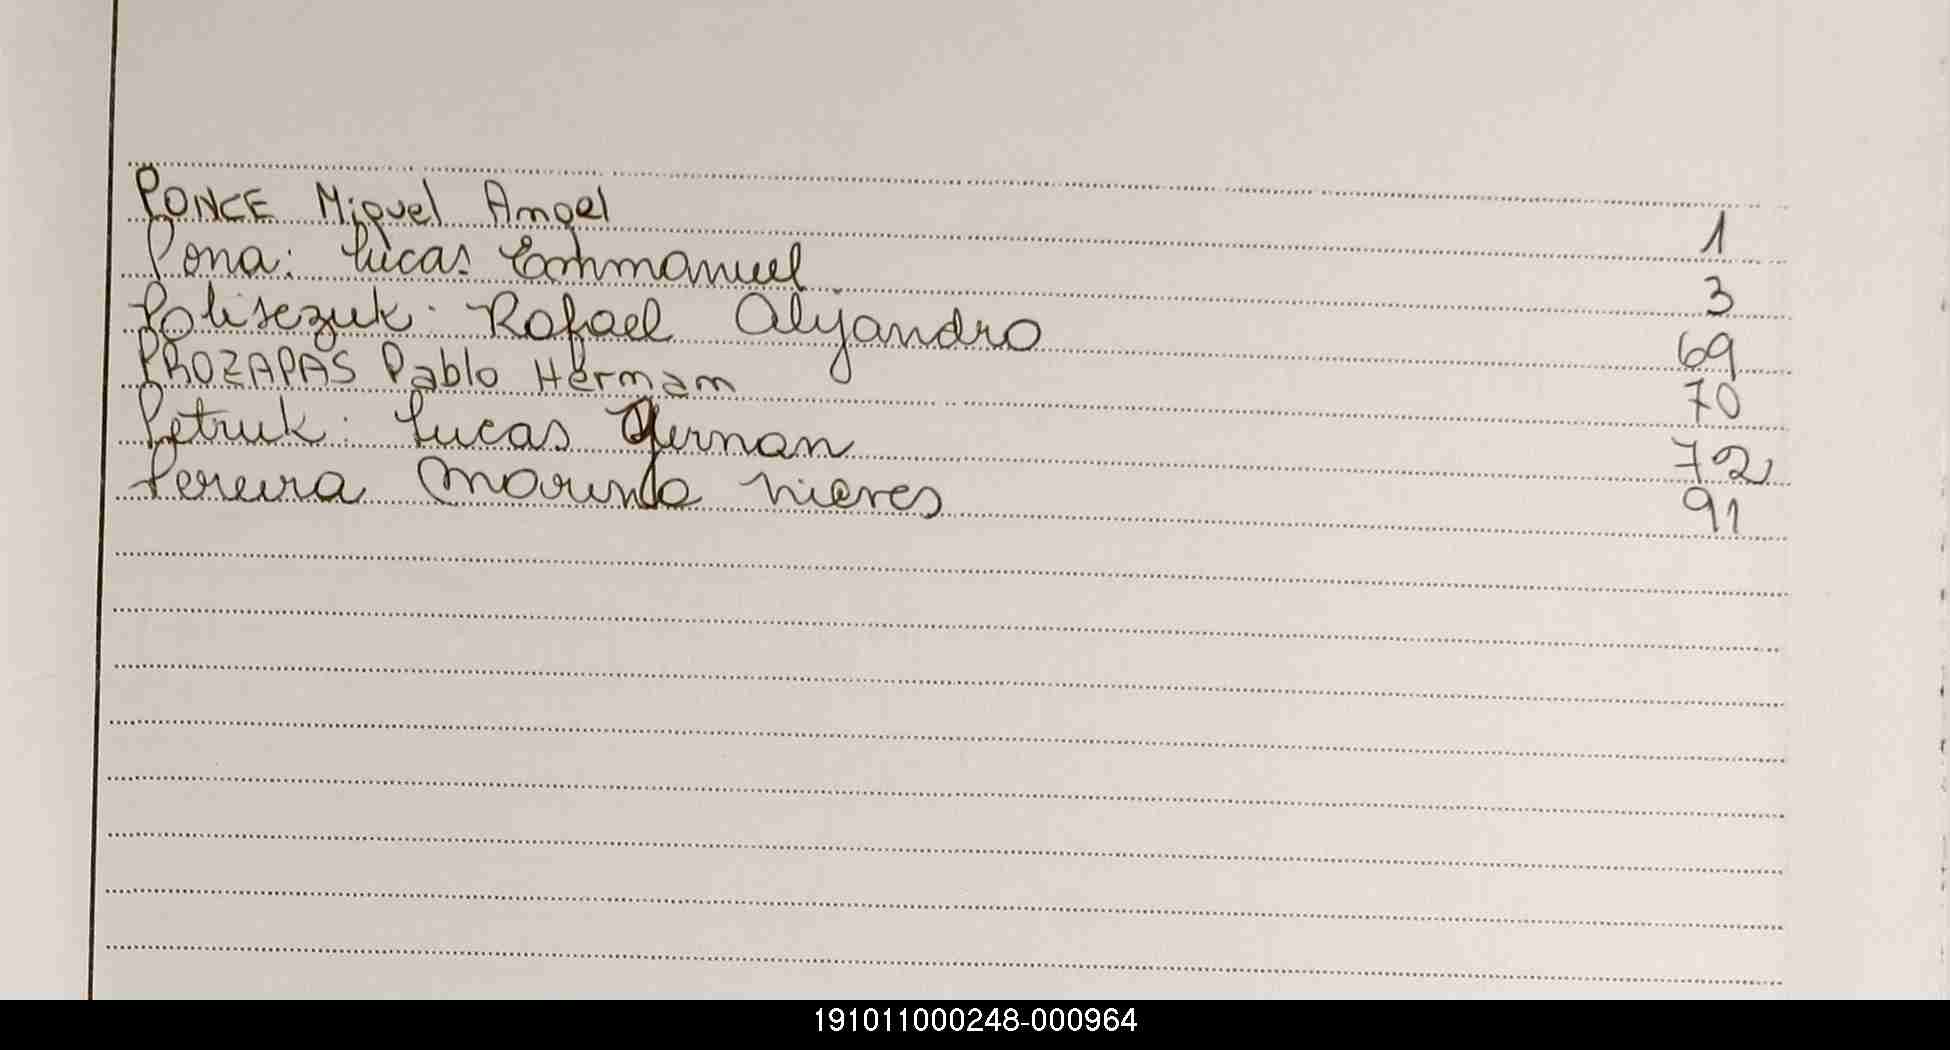 PONCE Miguel Angel 1
Pona: Lucas Emmanuel 3
Polisczuk: Rafael Alejandro 69
PROZAPAS Pablo Hernan 70
Petruk: Lucas Hernan 72
Pereira Marina Nieves 91
191011000248-000964